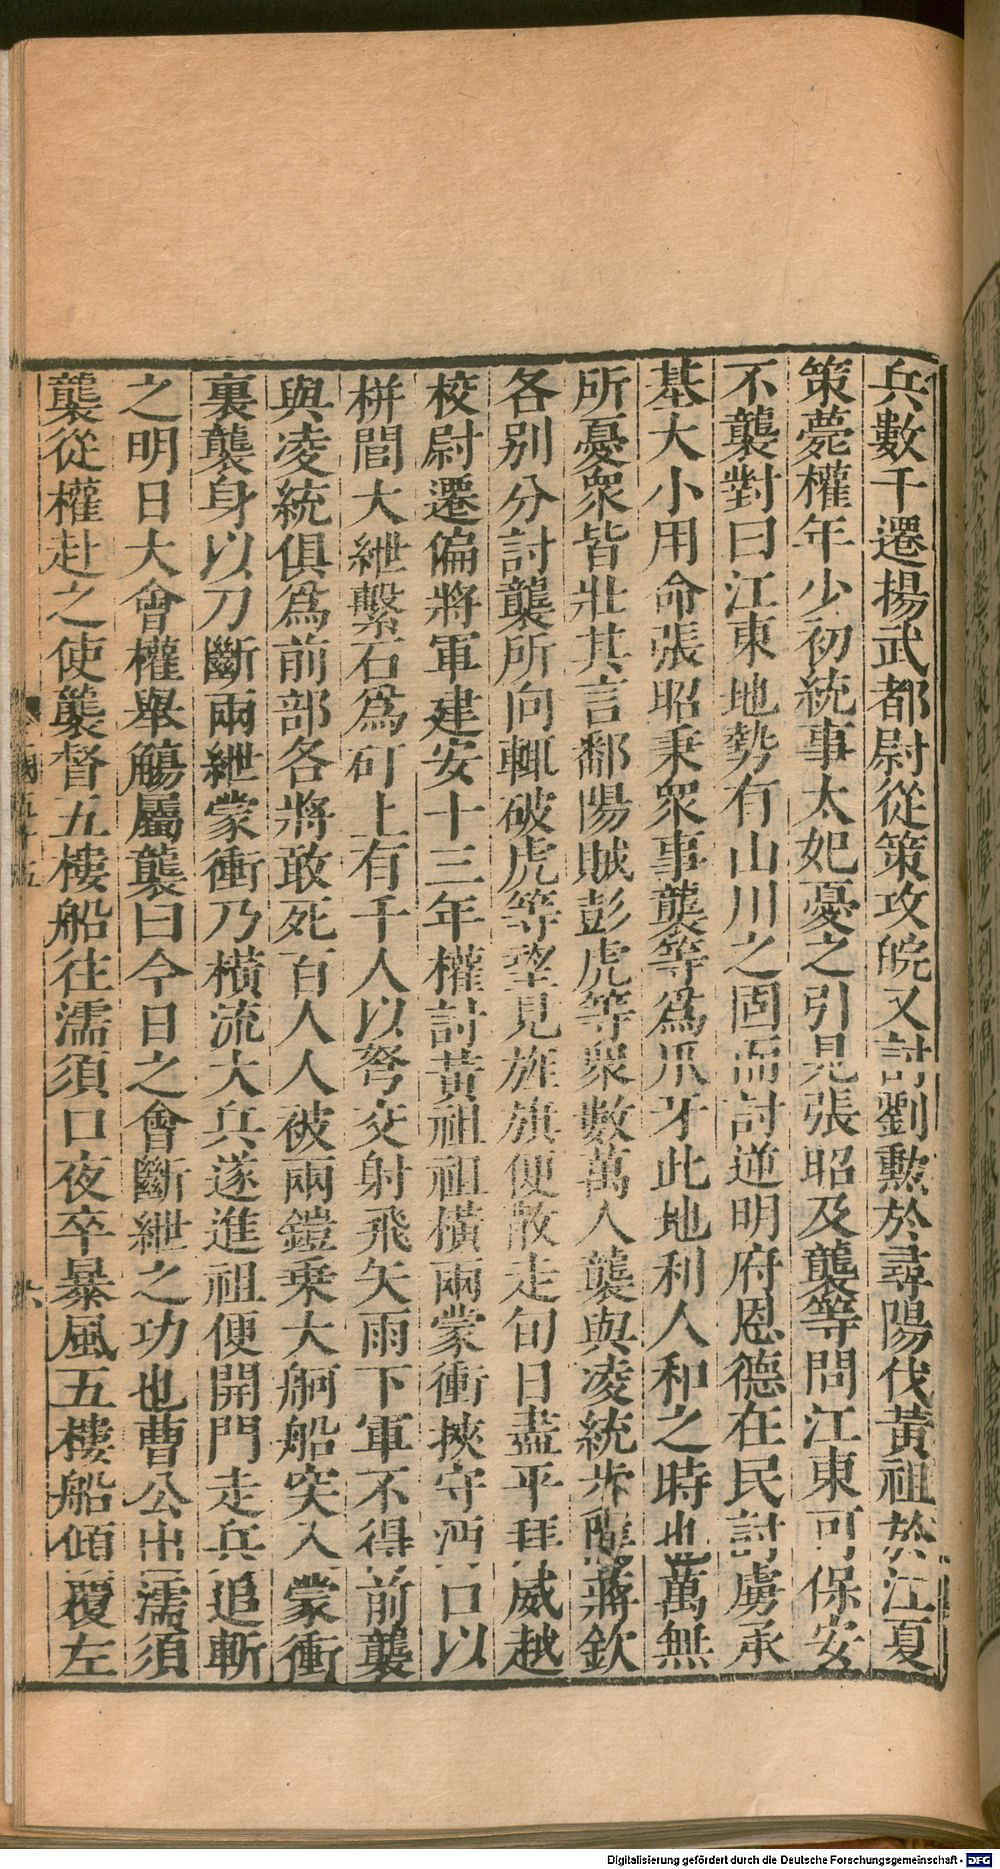 兵數千遷揚武都尉從策攻皖又討劉勲於尋陽伐黃祖於江夏
策薨權年少初統事太妃憂之引見張昭及襲等問江東可保安
不襲對曰江東地勢有山川之固而討逆明府恩德在民討虜承
基大小用命張昭秉衆事襲等爲爪牙此地利人和之時也萬無
所憂衆皆壯其言鄱陽賊彭虎等衆數萬人襲與凌統步隲蔣欽
各別分討襲所向輒破虎等望見旌旗便散走旬日盡平拜威越
校尉遷偏將軍建安十三年權討黃祖祖橫兩蒙衝挾守沔口以
栟閭大紲繫石爲矴上有千人以弩交射飛矢雨下軍不得前襲
與凌統俱爲前部各將敢死百人人被兩鎧乗大舸船突入蒙衝
裏襲身以刀斷兩紲蒙衝乃橫流大兵遂進祖便開門走兵追斬
之明日大會權舉觴屬襲曰今日之會斷紲之功也曹公出濡須
襲從權赴之使襲督五樓船往濡須口夜卒暴風五樓船傾覆左
Digitalisierung gefördert durch die Deutsche Forschungsgemeinschaft - DFG